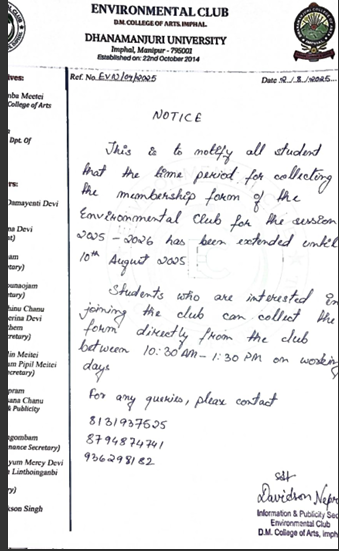 ENVIRONMENTAL CLUB
D.M. COLLEGE OF ARTS, IMPHAL
DHANAMANJURI UNIVERSITY
Imphal, Manipur - 795001
Established on: 22nd October 2014
Ref. No. EVN/09/2025
Date 2/8/2025
ives:
nba Meetei
College of Arts
Dpt. Of
rs:
Damayenti Devi
na Devi
nt)
am
etary)
ounaojam
etary)
hinu Chanu
erina Devi
them
cretary)
lin Meitei
am Pipil Meitei
ecretary)
pram
ana Chanu
& Publicity
ngombam
nance Secretary)
yum Mercy Devi
Linthoinganbi
ry)
kson Singh
NOTICE
This is to notify all student
that the time period for collecting
the membership form of the
Environmental Club for the session
2025-2026 has been extended until
10th August 2025
Students who are interested in
joining the club can collect the
form directly from the club
between 10:30 AM - 1:30 PM on working
days
For any queries, please contact
8131937525
8794874741
936298182
Sd/-
Davidson
Information & Publicity Sec
Environmental Club
D.M. College of Arts, Imph